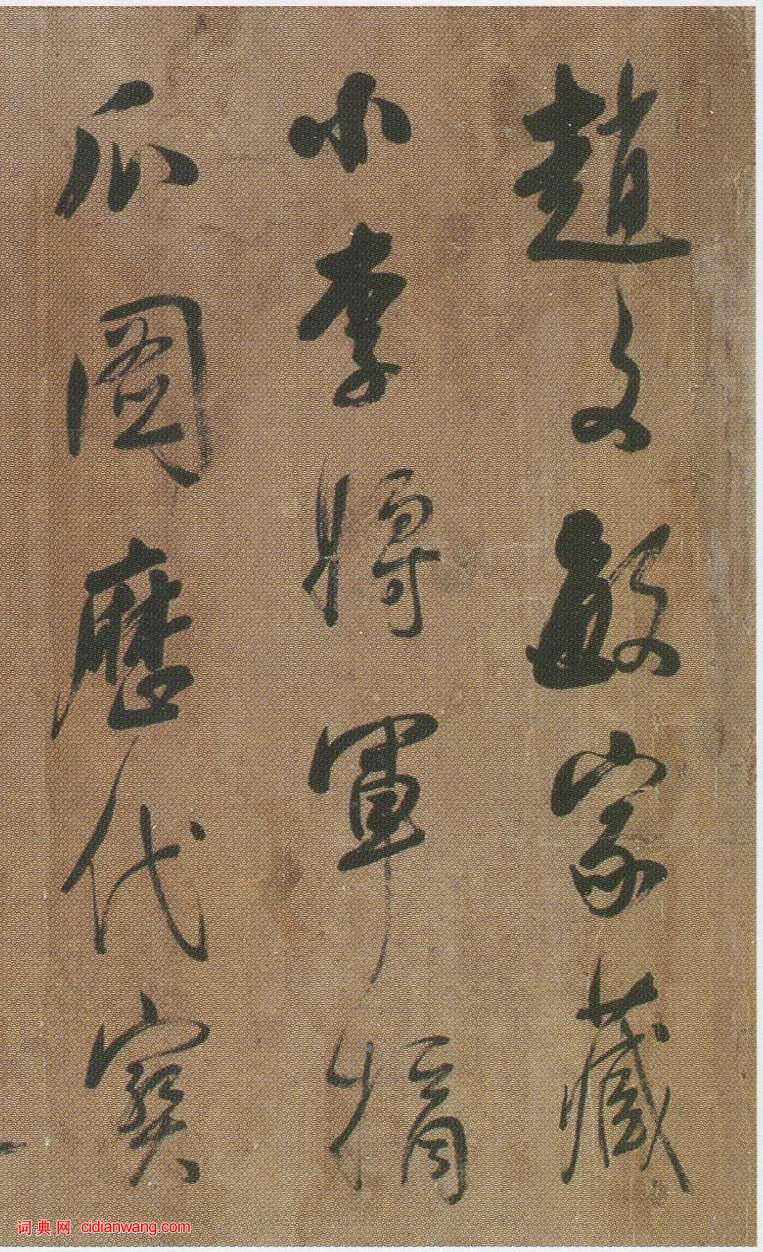 趙文敏家藏
小李將軍摘
瓜圖歷代寶
词典网 cidianwang.com